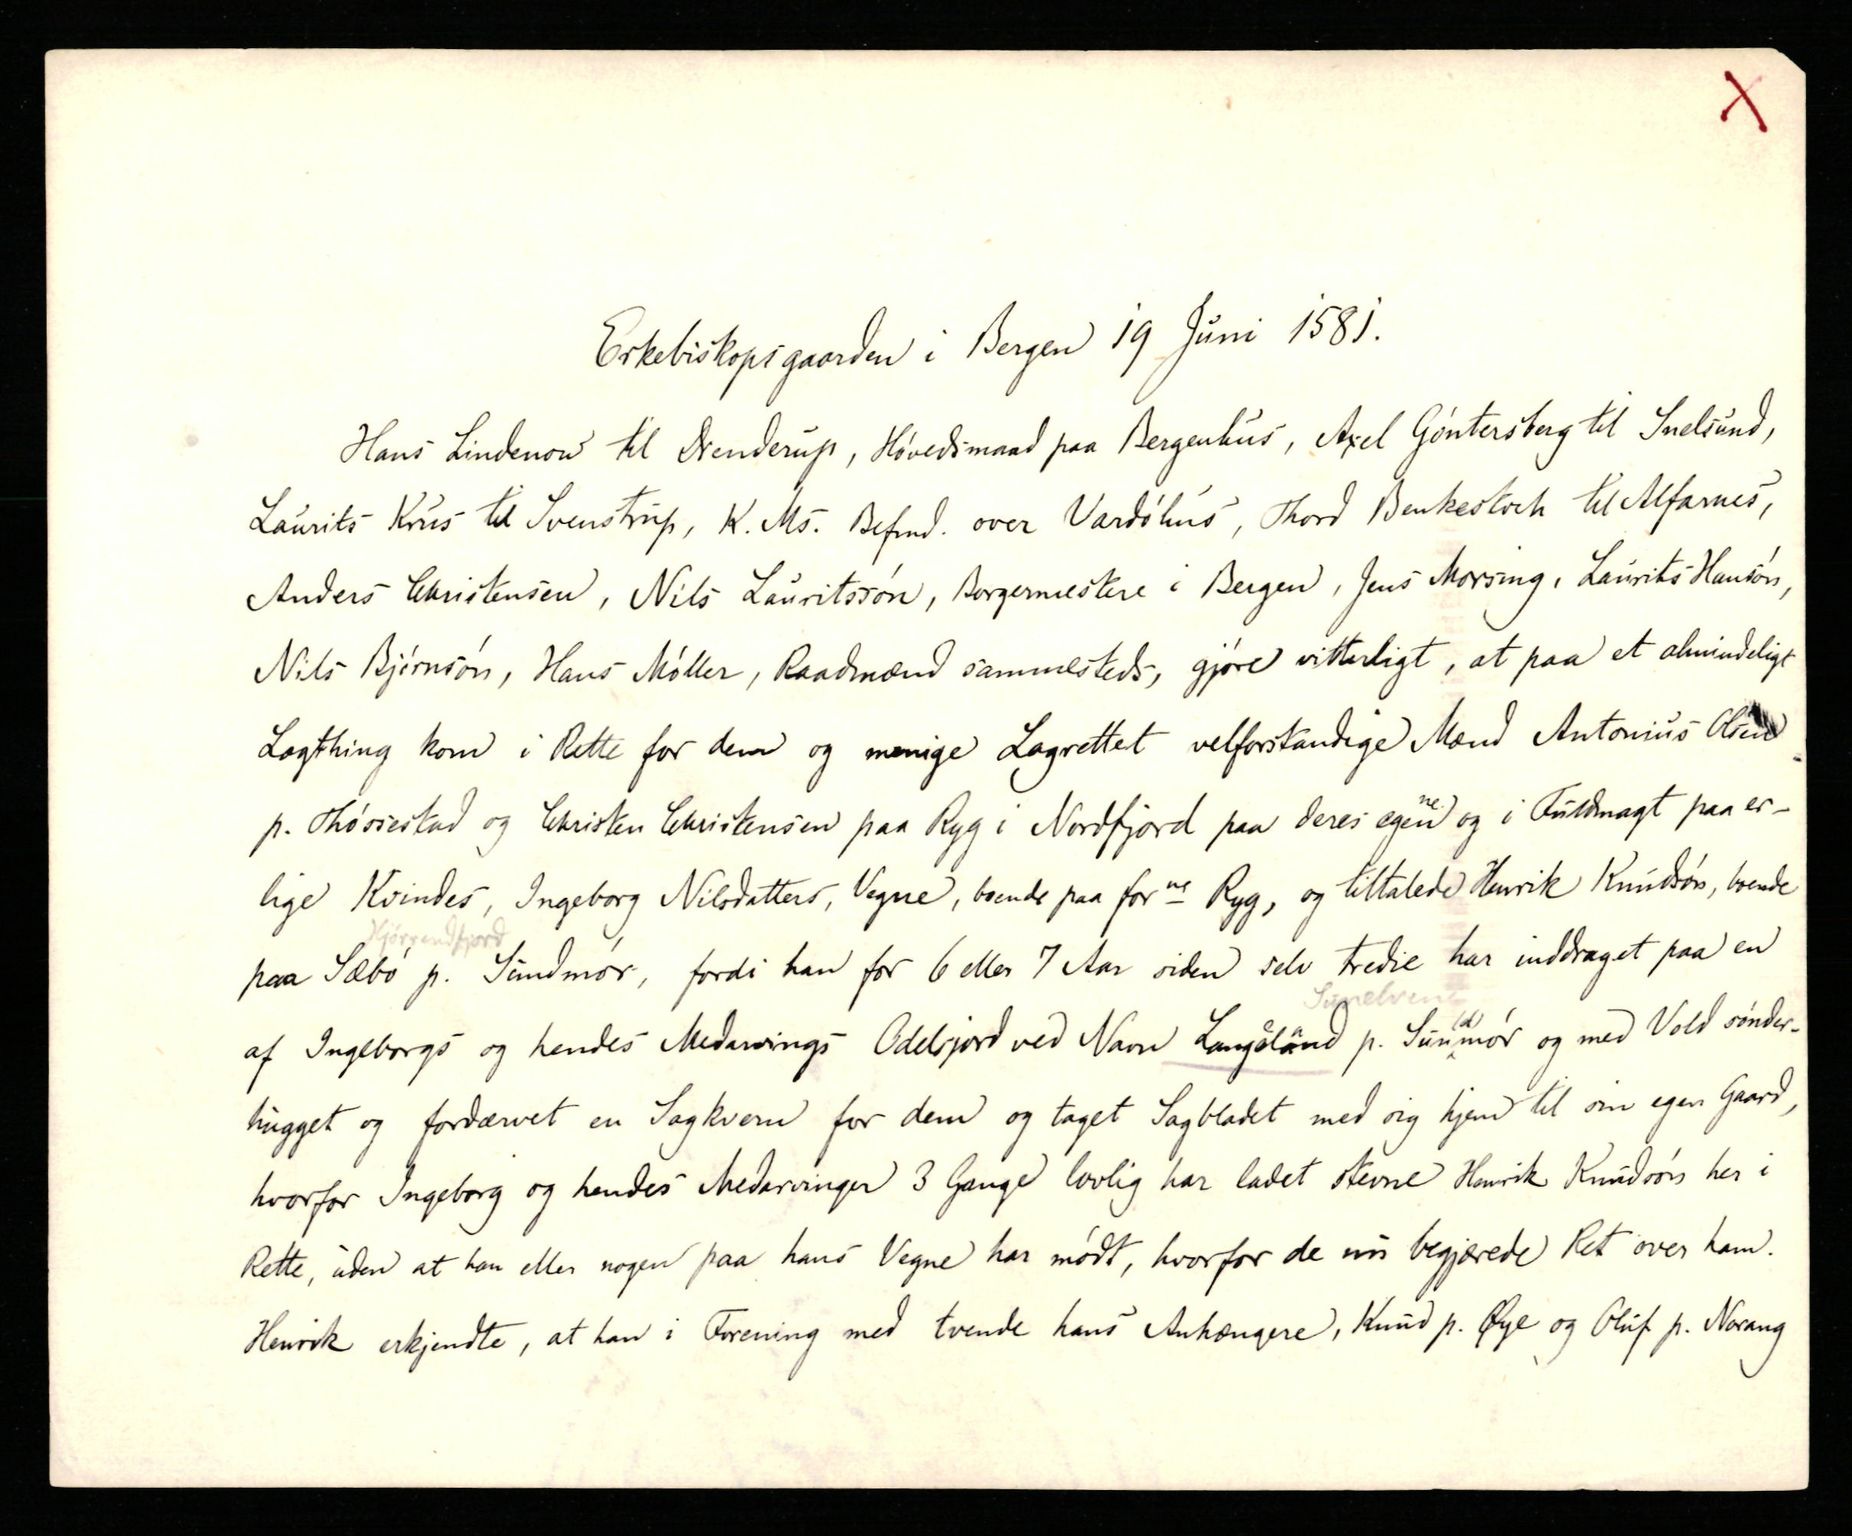 X
Erkebiskopsgaarden i Bergen 19 Juni 1581.
Hans Lindenow til Drenderup, Hövedsmand paa Bergenhus, Axel Göntersberg til Snelsund,
Laurits Krus til Svenstrup, K. Ms. Befmd. over Vardöhus, Thord Benkestock til Alfarnes,
Anders Christensen, Nils Lauritssön, Borgermestere i Bergen, Jens Morsing, Laurits Hansön,
Nils Björnsön, Hans Möller, Raadmænd sammesteds, gjöre vitterligt, at paa et almindeligt
Lagthing kom i Rette for dem og menige Lagrettet velforstandige Mænd Antonius Olsen
p. Thössestad og Christen Christensen paa Ryg i Nordfjord paa deres egne og i Fuldmagt paa er-
lige Kvindes, Ingeborg Nilsdatters, Vegne, boende paa forne Ryg, og tiltalede Henrik Knudsön, boende
Hjörrendfjord
paa Sæbö p. Sundmör, fordi han for 6 eller 7 Aar siden selv tredie har inddraget paa en
Sunelvene
af Ingeborgs og hendes Medarvings Odelsjord ved Navn Langeland p. Sun(d)mör og med Vold sönder-
hugget og fordærvet en Sagkvern for dem og taget Sagbladet med sig hjem til sin egen Gaard,
hvorfor Ingeborg og hendes Medarvinger 3 Gange lovlig har ladet stevne Henrik Knudsön her i
Rette, uden at han eller nogen paa hans Vegne har mödt, hvorfor de nu begjærede Ret over ham.
Henrik erkjendte, at han i Forening med tvende hans Anhængere, Knud p. Øye og Oluf p. Norang